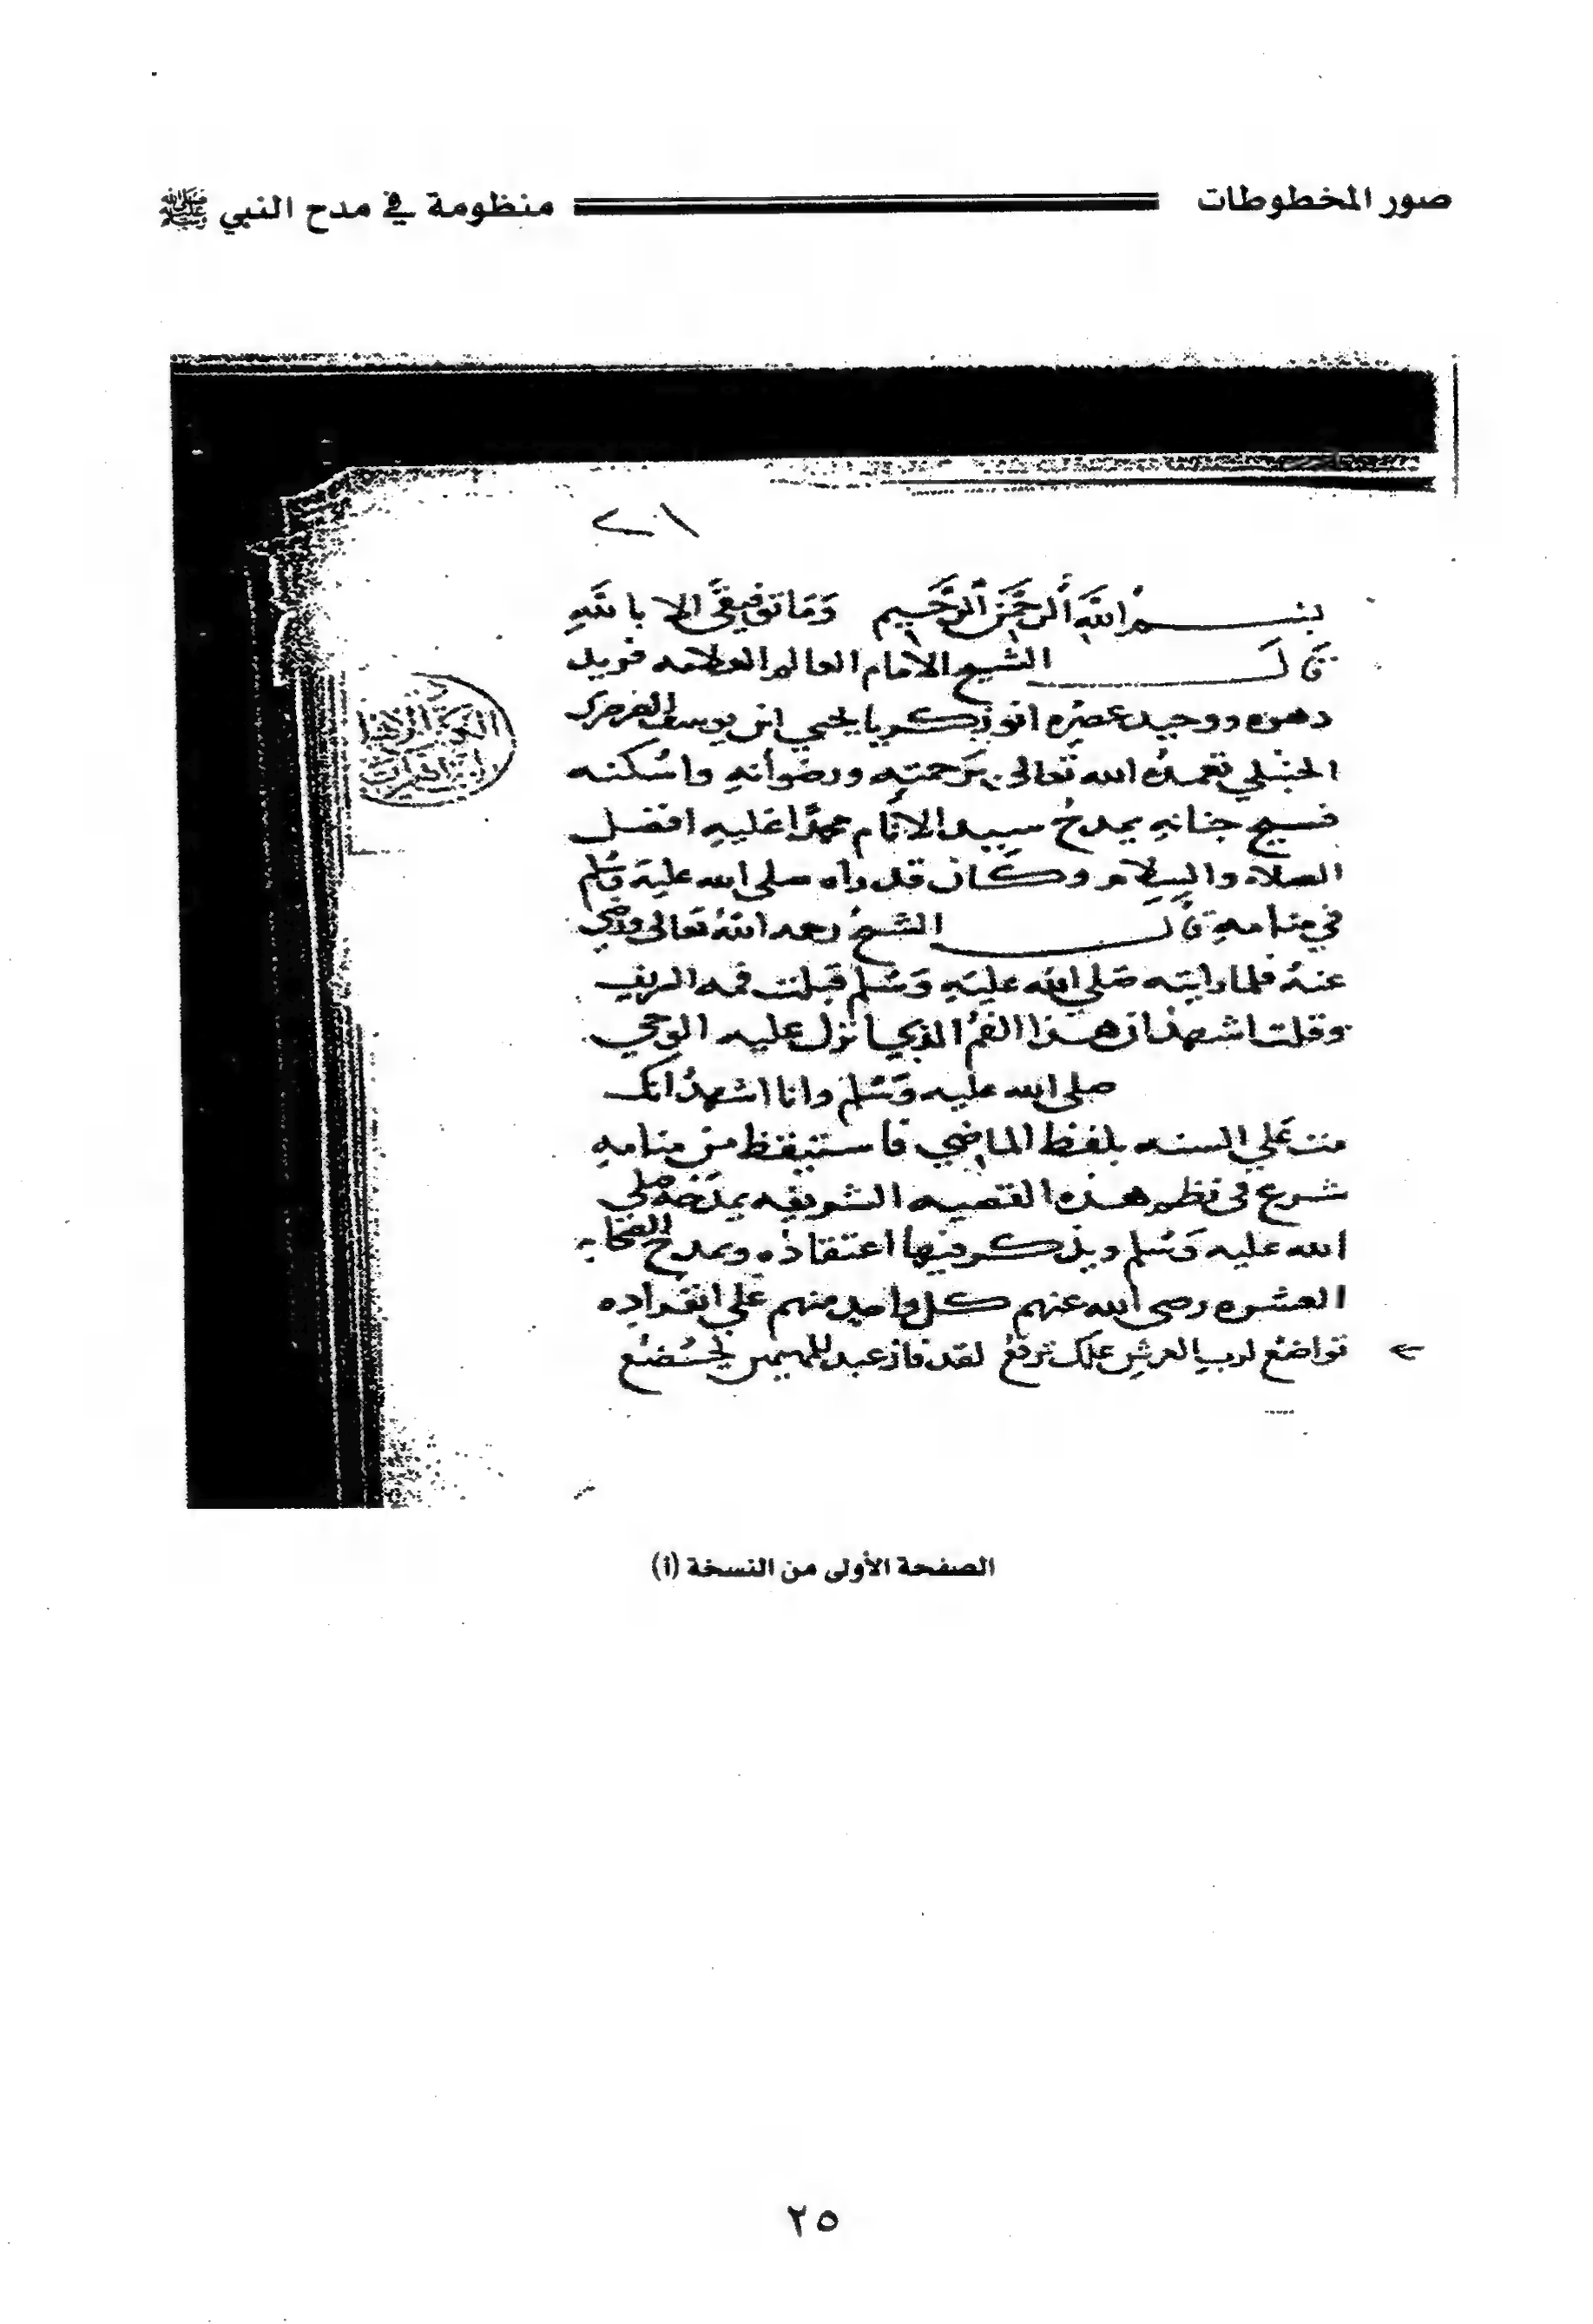 صور المخطوطات منظومة في مدح النبي ﷺ
بسم الله الرحمن الرحيم وما توفيقي الا بالله
قال الشيخ الامام العالم العلامه فريد
دهره ووحيد عصره ابو زكريا يحيي ابن يوسف الصرصري
الحنبلي تغمده الله تعالى برحمته ورضوانه واسكنه
فسيح جنانه يمدح سيد الانام محمدا عليه افضل
الصلاه والسلام وكان قد راه صلى الله عليه وسلم
في منامه قال الشيخ رحمه الله تعالى ورضي
عنه فلما رايته صلي الله عليه وسلم قبلت فمه
وقلت اشهد ان هذا الفم الذي انزل عليه الوحي
صلى الله عليه وسلم وانا اشهد انك
مت علي السنه بلفظ الماضي فاستيقظ من منامه
شرع في نظم هذه القصيه الشريفه بمدحه صلى
الله عليه وسلم ويذكر فيها اعتقاده وبمدح الصحابه
العشره رضى الله عنهم كل واحد منهم علي انفراده
تواضع لرب العرش علك ترفع لقد فاز عبد للمهيمن يخضع
الصفحة الأولى من النسخة (أ)
٢٥